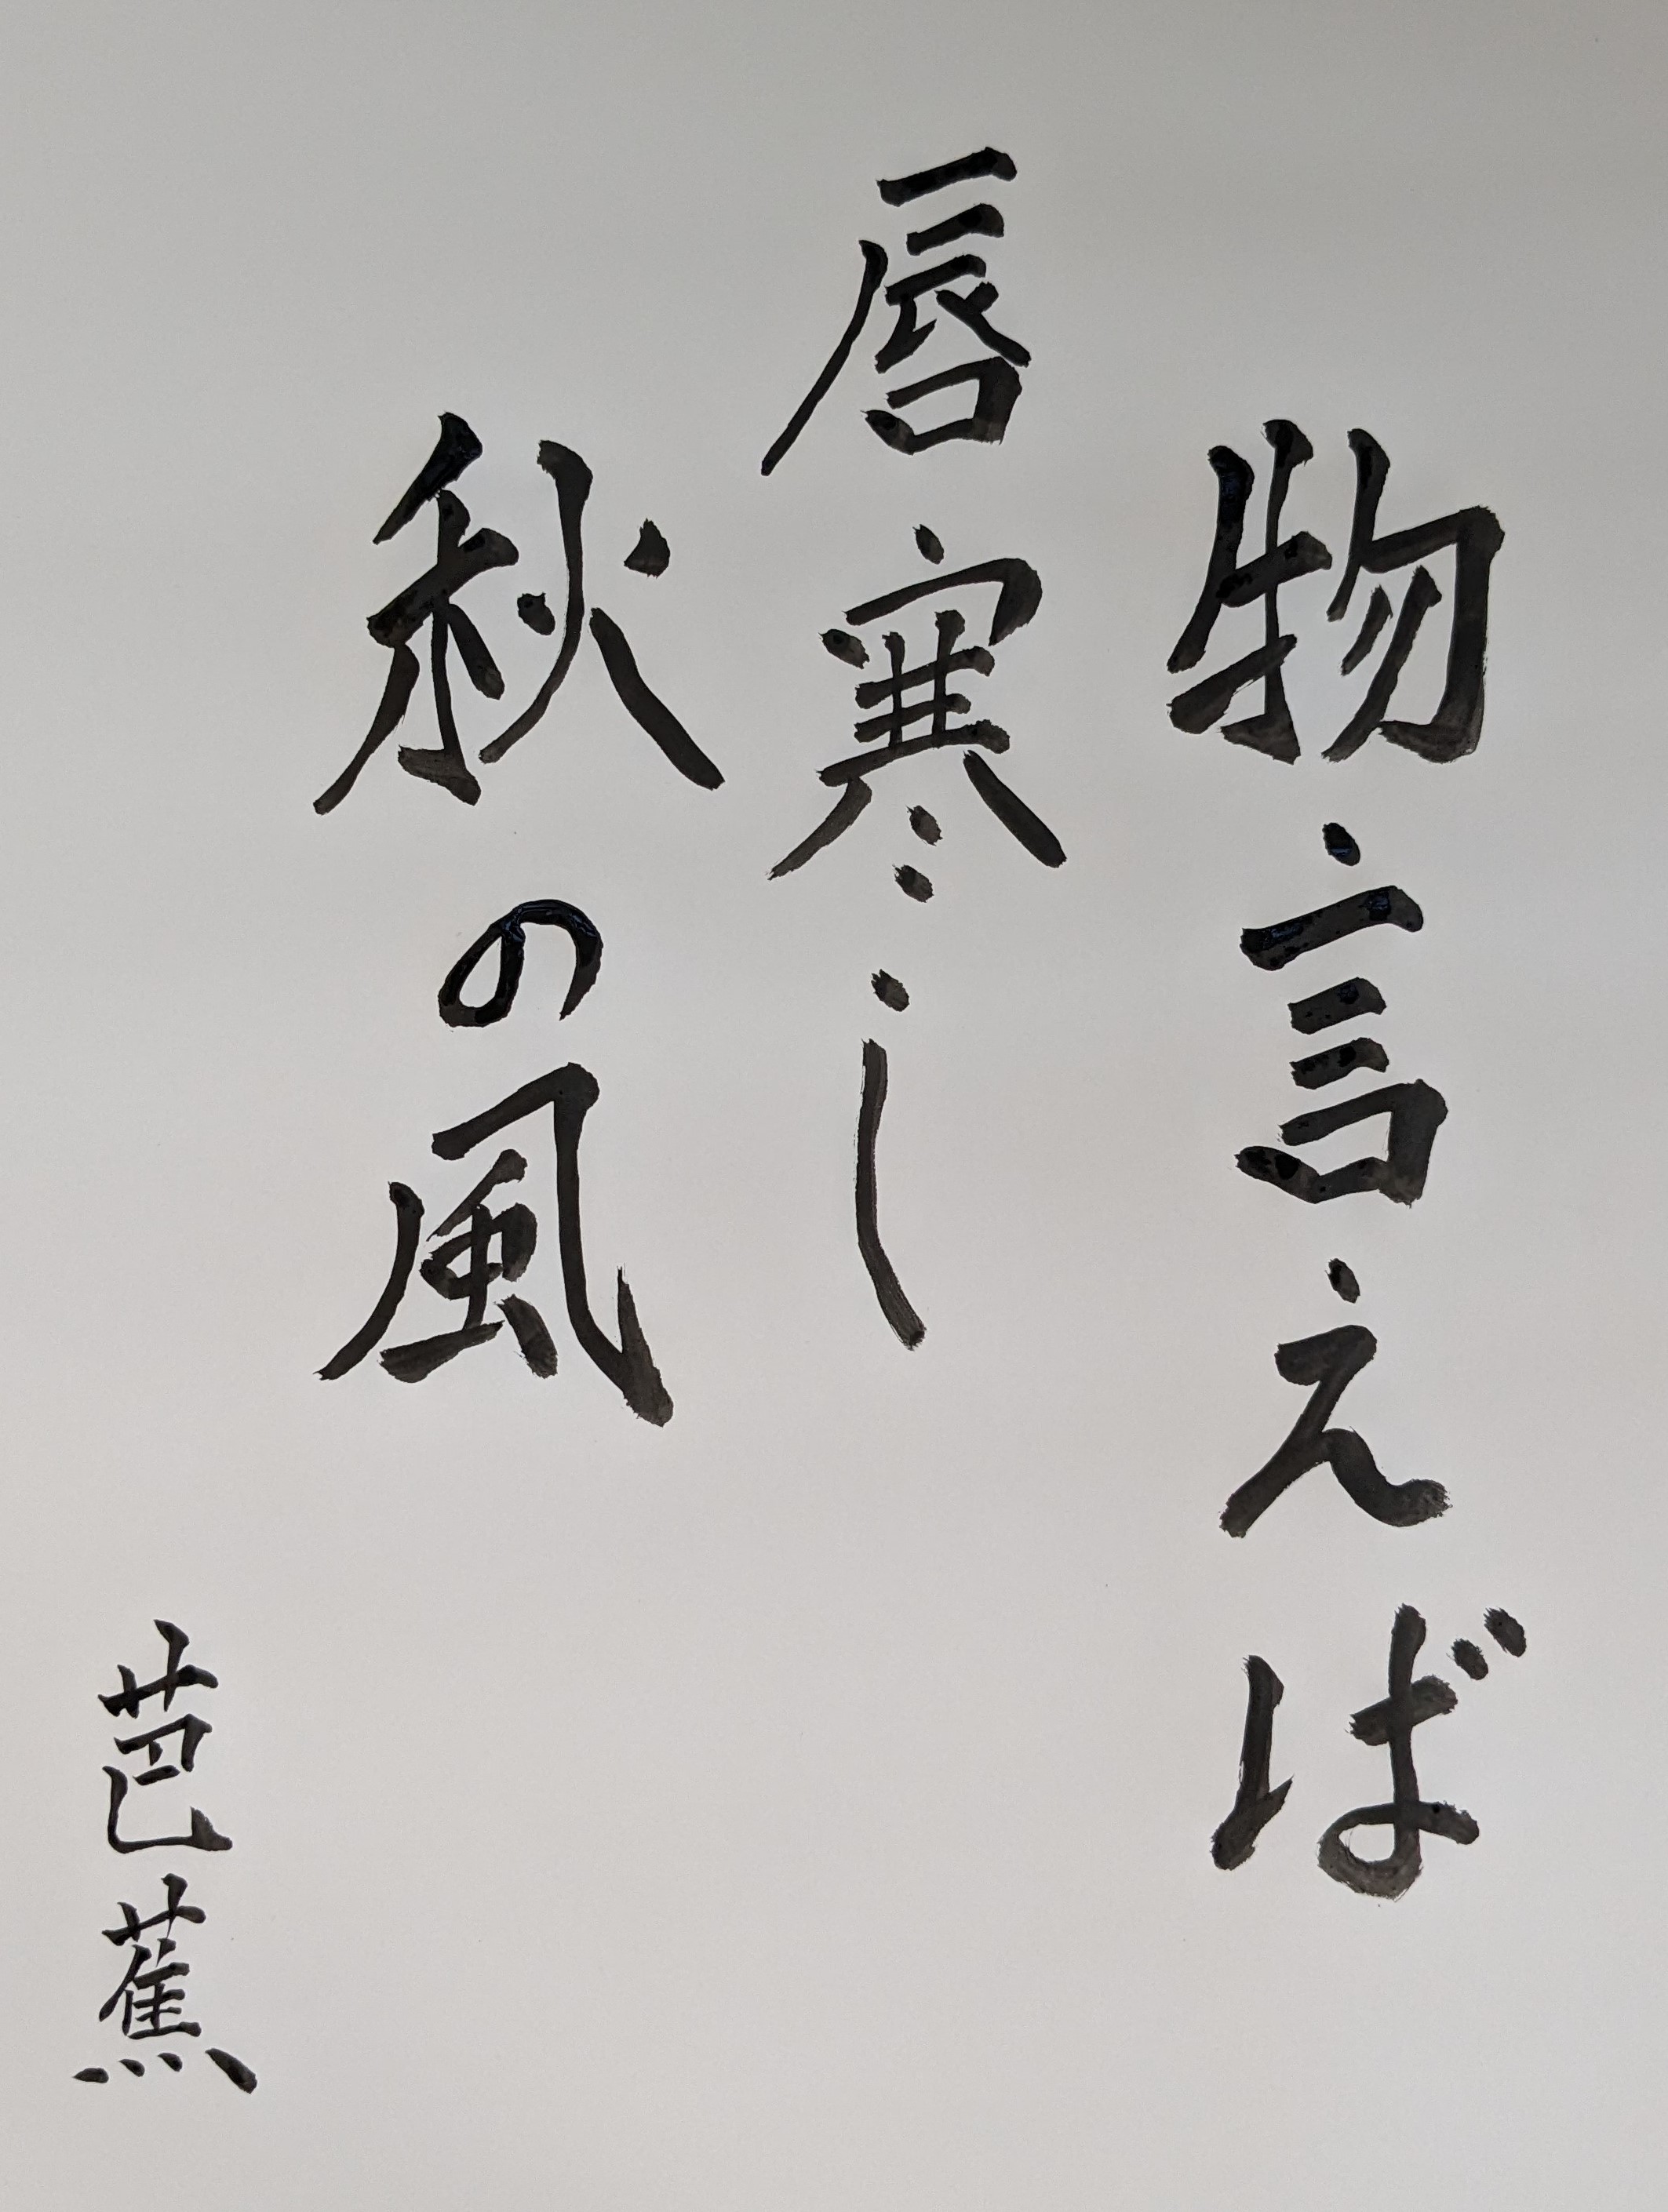 物言えば
唇寒し
秋の風
芭蕉